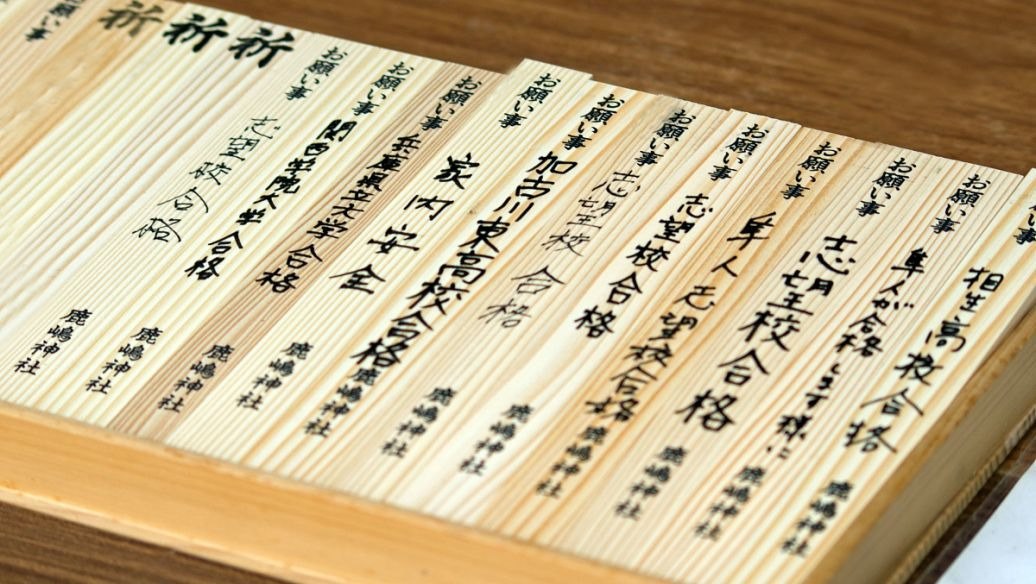 お願い事 相生高校合格 鹿嶋神社
お願い事 隼人が合格します様に 鹿嶋神社
お願い事 志望校合格 鹿嶋神社
お願い事 隼人志望校合格 鹿嶋神社
お願い事 志望校合格 鹿嶋神社
お願い事 志望校合格 鹿嶋神社
お願い事 加古川東高校合格 鹿嶋神社
お願い事 家内安全 鹿嶋神社
お願い事 兵庫県立大学合格 鹿嶋神社
お願い事 関西学院大学合格 鹿嶋神社
お願い事 志望校合格 鹿嶋神社
祈
祈
祈
お願い事